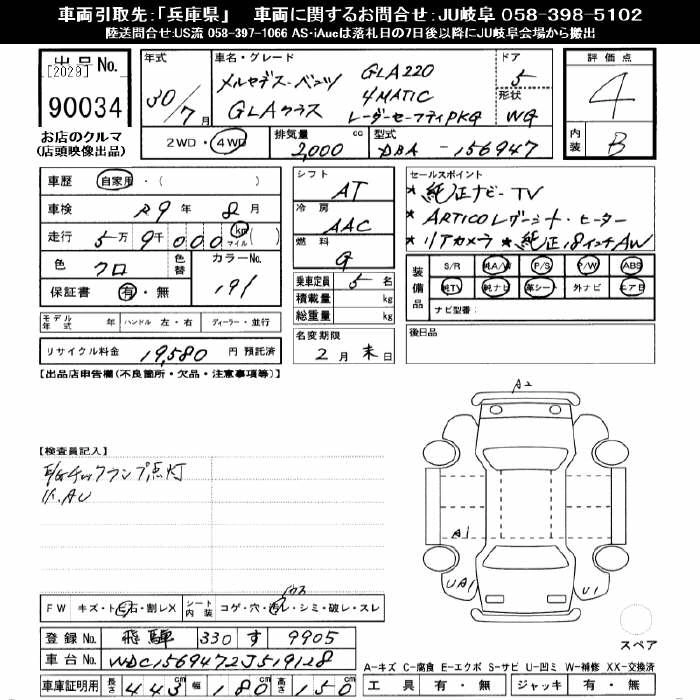 車両引取先:「兵庫県」　車両に関するお問合せ:JU岐阜 058-398-5102
陸送問合せ:US流 058-397-1066 AS-iAucは落札日の7日後以降にJU岐阜会場から搬出
出品No.
[2029]
90034
お店のクルマ
(店頭映像出品)
年式
30/7月
車名・グレード
メルセデス・ベンツ GLA220
GLAクラス 4MATIC
レーダーセーフティPKG
ドア
5
形状
WG
2WD・4WD
排気量 2,000 cc
型式 DBA-156947
評価点
4
内装 B
車歴 自家用・( )
車検 R9年 8月
走行 5万9千000 km マイル ( )
色 クロ
色替
カラーNo. 191
保証書 有・無
シフト AT
冷房 AAC
燃料 G
乗車定員 5名
積載量 kg
総重量 kg
セールスポイント
* 純正ナビ・TV
* ARTICOレザーシート・ヒーター
* リアカメラ * 純正18インチAW
装備品
S/R 純A/W P/S P/W ABS
純TV 純ナビ 革シート 外ナビ エアB
ナビ型番:
モデル年式 年 ハンドル 左・右 ディーラー・並行
リサイクル料金 19,580 円 預託済
名変期限
2月末日
後日品
【出品店申告欄(不良箇所・欠品・注意事項等)】
A2
【検査員記入】
E/Gチェックランプ点灯
A1
UA1
U1
FW キズ・ト・飛石・割レX シート内装 コゲ・穴・汚レ・シミ・破レ・スレ
登録No. 飛騨 330 す 9905
車台No. WDC1569472J519128
車庫証明用 長さ 443 cm 幅 180 cm 高さ 150 cm
スペア
A-キズ C-腐食 E-エクボ S-サビ U-凹ミ W-補修 XX-交換済
工具 有・無 ジャッキ 有・無